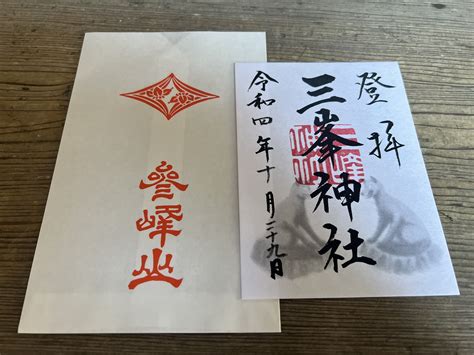 參峰山
登拝
三峯神社
令和四年十月二十九日